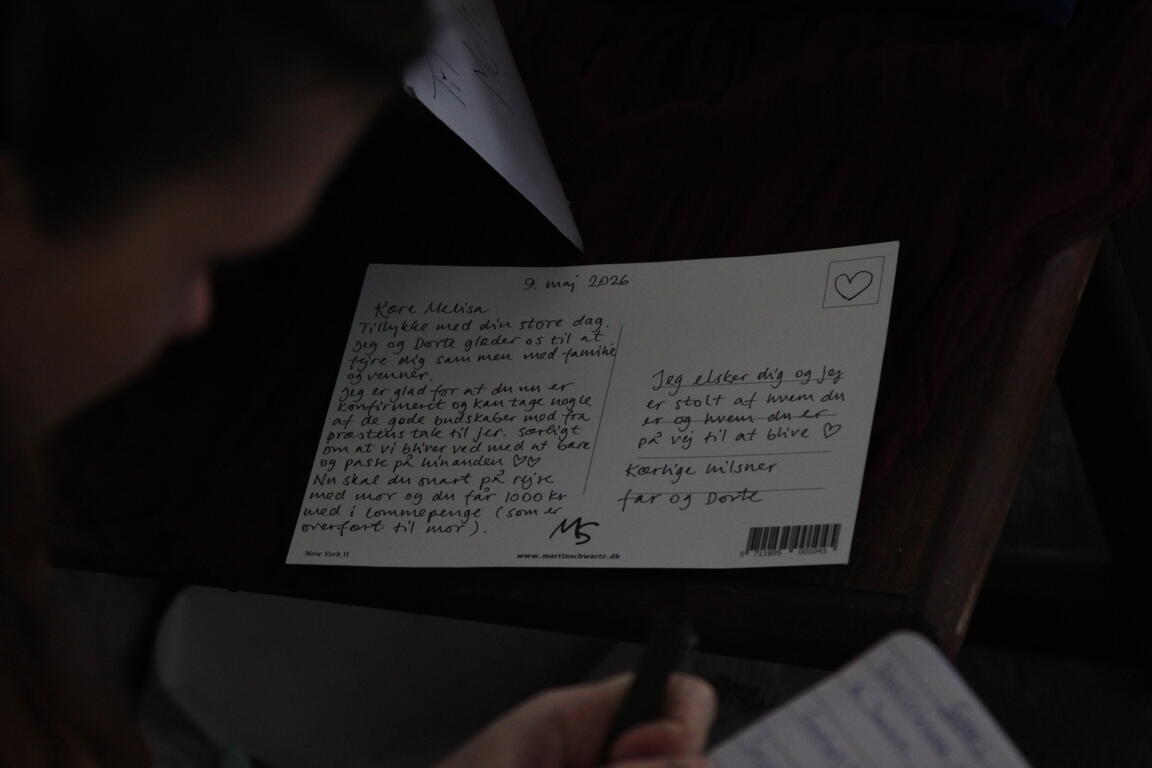 Til
9. maj 2026
Kære Melisa
Tillykke med din store dag.
Jeg og Dorte glæder os til at
fejre dig sammen med familie
og venner.
Jeg er glad for at du nu er
konfirmeret og kan tage nogle
af de gode budskaber med fra
præstens tale til jer. Særligt
om at vi bliver ved med at bære
og passe på hinanden ♡♡
Nu skal du snart på rejse
med mor og du får 1000 kr
med i lommepenge (som er
overført til mor).
Jeg elsker dig og jeg
er stolt af hvem du
er og hvem du er
på vej til at blive ♡
Kærlige hilsner
far og Dorte
MS
New York II
www.martinschwartz.dk
5 711895 001045